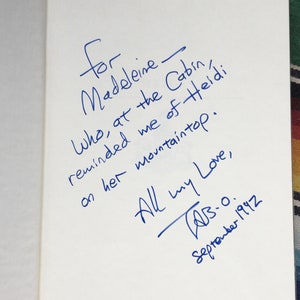 for
Madeleine—
Who, at the Cabin,
reminded me of Heidi
on her mountaintop.
All my Love,
TAB-O.
September 1942